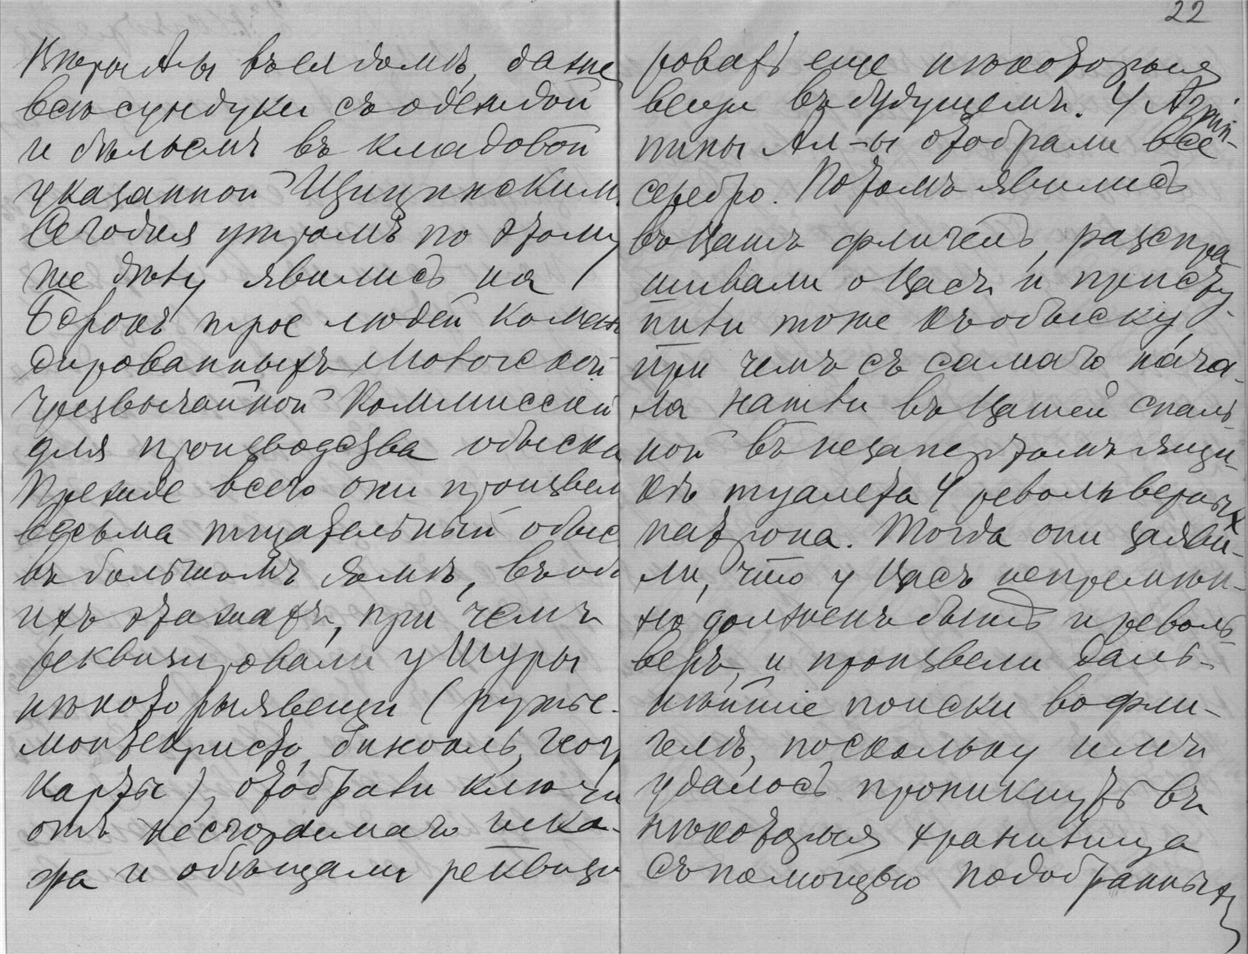 вся дома, даже
всѣ сундуки съ одеждой
и бѣльемъ въ кладовой
указанной Щицинским
Сегодня утромъ по этому
же дѣлу явились на
трое людей коман
дированныхъ Мотовской
Чрезвычайной Коммиссiей
для производства обыска
Прежде всего они произвели
весьма тщательный обыск
въ большомъ домѣ, въ обо
ихъ этажахъ, при чемъ
реквизировали у Шуры
нѣкоторыя вещи (ружье-
монтекристо, бинокль, геогр
карты), отобрали ключи
отъ несгораемаго шка-
фа и обѣщали реквизи
22
ровать еще нѣкоторыя
вещи въ будущемъ. У
Ал-ы отобрали все
серебро. Потомъ явились
въ Вашъ флигель, разспра
шивали о Васъ и присту-
пили тоже къ обыску,
при чемъ съ самаго нача-
ла нашли въ Вашей спаль
ной въ незапертомъ ящи-
кѣ туалета 4 револьверныхъ
патрона. Тогда они заяви-
ли, что у Васъ непремѣн-
но долженъ быть и револь
веръ, и произвели даль-
нѣйшiе поиски во фли-
гелѣ, поскольку имъ
удалось проникнуть въ
нѣкоторыя хранилища
съ помощью подобранныхъ